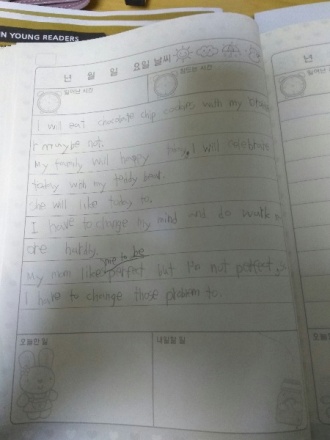 N YOUNG READERS
년 월 일 요일 날씨
일어난 시간
잠드는 시간
I will eat chocolate chip cookies with my
r maybe not.
My family will happy today, I will celebrate
today with my teddy bear.
She will like today to.
I have to change my mind and do
one hardly
My mom like to be perfect but I'm not perfect, so
I have to change those problem to.
오늘한 일
내일할 일
년